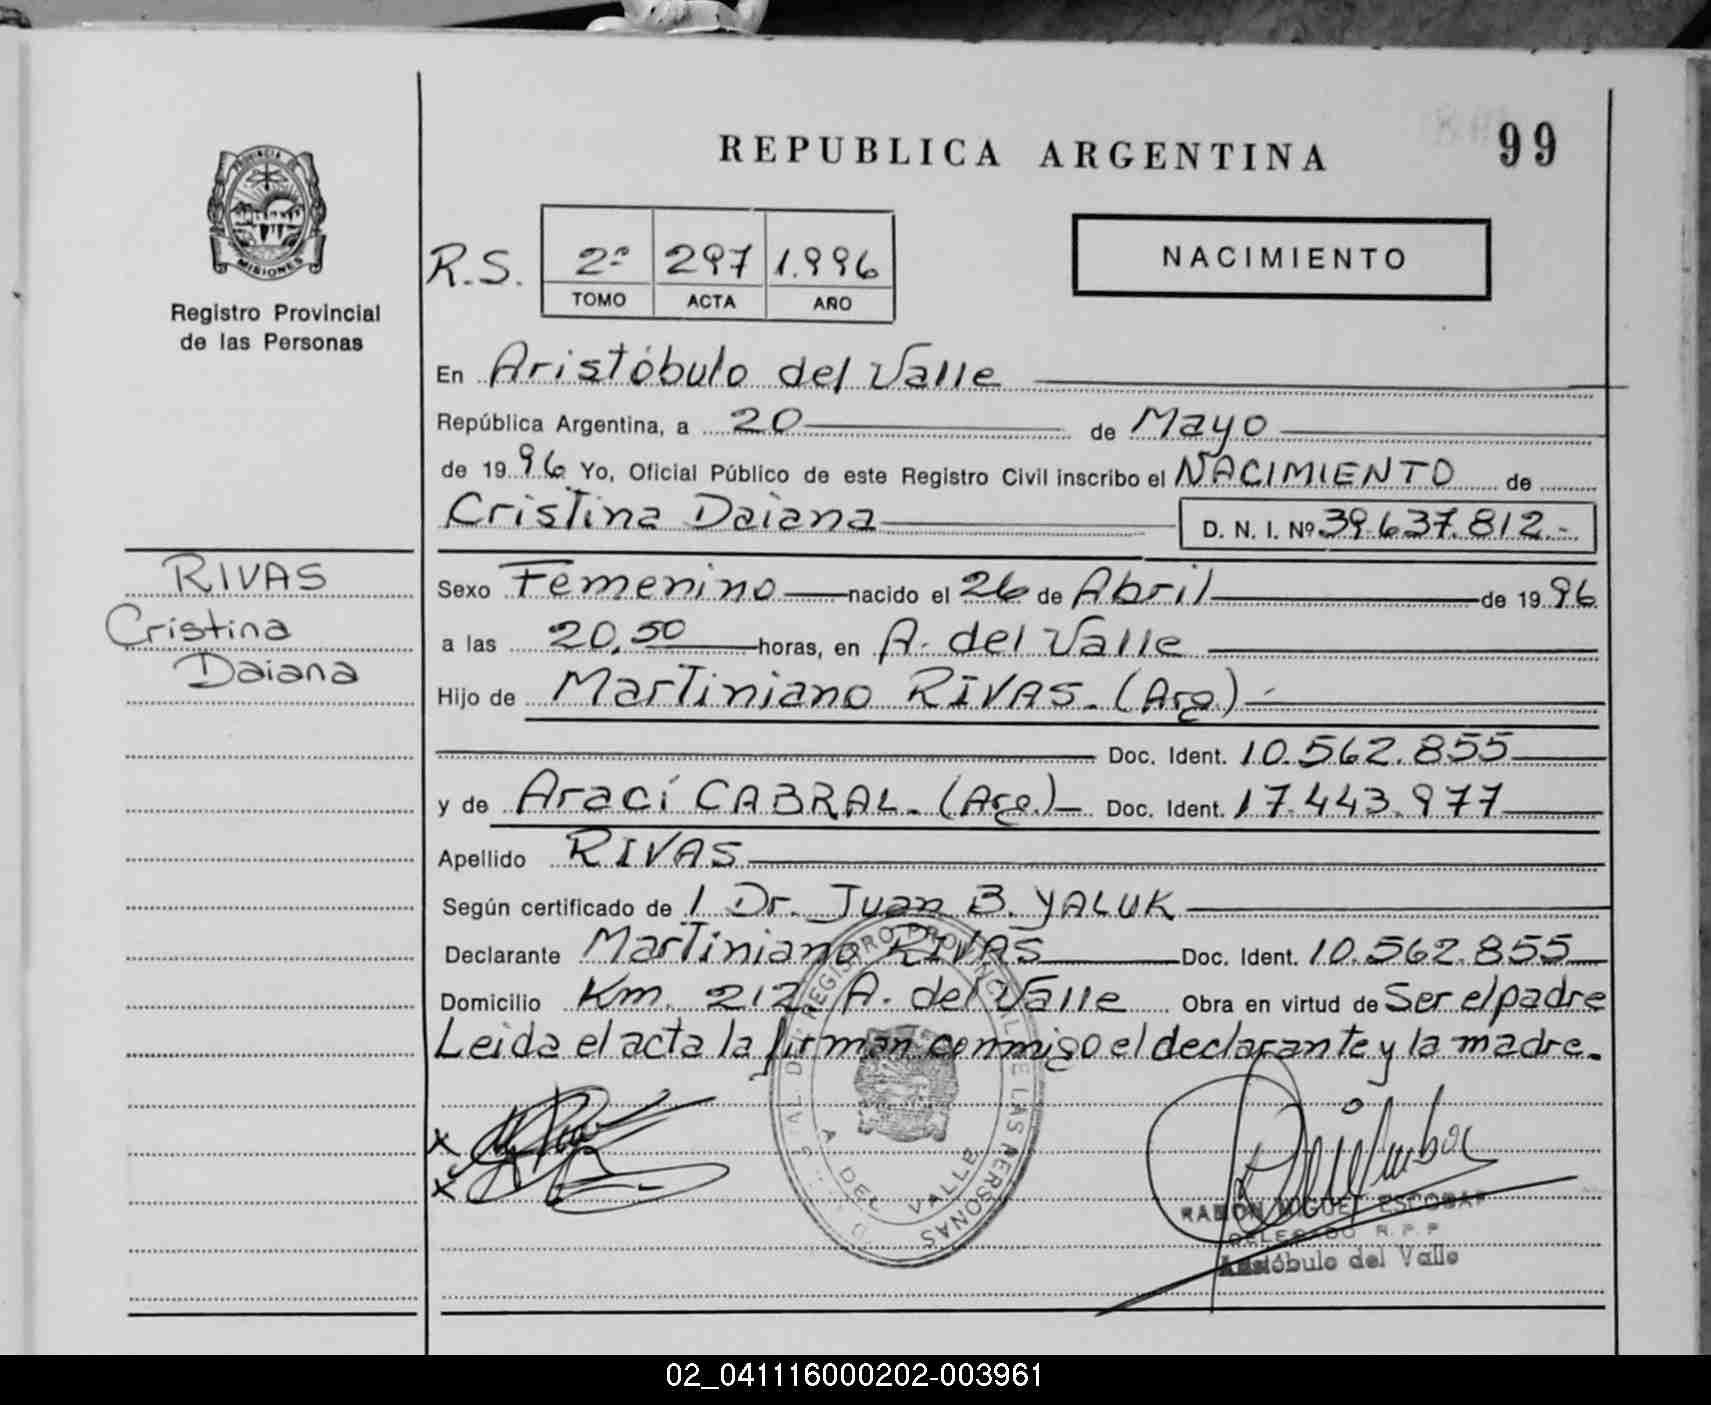 REPUBLICA ARGENTINA
99
PROVINCIA DE
MISIONES
Registro Provincial
de las Personas
R.S. 2º 297 1.996
TOMO ACTA AÑO
NACIMIENTO
En Aristóbulo del Valle
República Argentina, a 20 de Mayo
de 1996 Yo, Oficial Público de este Registro Civil inscribo el NACIMIENTO de
Cristina Daiana D. N. I. Nº 39.637.812.-
RIVAS
Cristina
Daiana
Sexo Femenino nacido el 26 de Abril de 1996
a las 20,50 horas, en A. del Valle
Hijo de Martiniano RIVAS. (Arg.)
Doc. Ident. 10.562.855
y de Arací CABRAL. (Arg.) Doc. Ident. 17.443.977
Apellido RIVAS
Según certificado de 1 Dr. Juan B. YALUK
Declarante Martiniano RIVAS Doc. Ident. 10.562.855
Domicilio Km. 212 A. del Valle Obra en virtud de Ser el padre
Leida el acta la firman conmigo el declarante y la madre.
REGISTRO PROVINCIAL DE LAS PERSONAS
A DEL VALLE
x
x
RAMON MIGUEL ESCOBAR
DELEGADO R. P. P
Aristóbulo del Valle
02_041116000202-003961